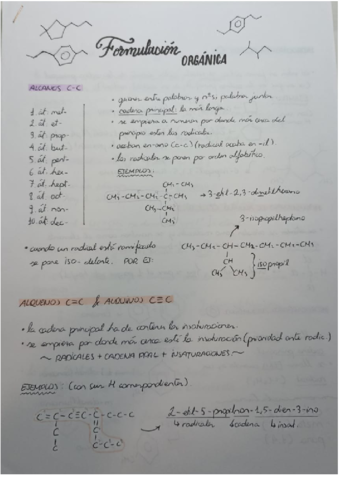 Formulación
ORGÁNICA
ALCANOS C-C
1 át. met-
2 át. et-
3 át. prop-
4 át. but-
5 át. pent-
6 át. hex-
7 át. hept-
8 át. oct
9 át. non-
10 át. dec-
• guiones entre palabras y nºs; palabras juntas
• cadena principal: la más larga.
• se empieza a numerar por donde más cerca del
principio estén los radicales.
• acaban en -ano (c-c) (radical acaba en -il).
• los radicales se ponen por orden alfabético.
EJEMPLOS:
CH₂ - CH₃
CH₃-CH₂-CH₂-C-CH₃
3-isopropilheptano
• cuando un radical está ramificado
se pone iso- delante. POR EJ:
CH₃-CH₂-CH-CH₂-CH₂-CH₂-CH₃
CH
CH₃ CH₃
isopropil
ALQUENOS C=C Y ALQUINOS C≡C
• la cadena principal ha de contener las insaturaciones.
• se empieza por donde más cerca esté la insaturación (prioridad ante radic.)
~ RADICALES + CADENA PPAL + INSATURACIONES ~
EJEMPLOS: (con sus H correspondientes)
C=C-C≡C-C-C-C-C
2-etil-5-propilnon-1,5-dien-3-ino
radicales cadena insat.